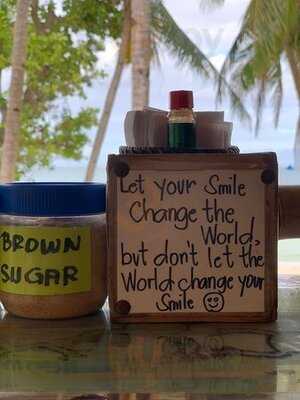 Let your Smile
Change the
World,
but don't let the
World change your
Smile ☺
BROWN
SUGAR